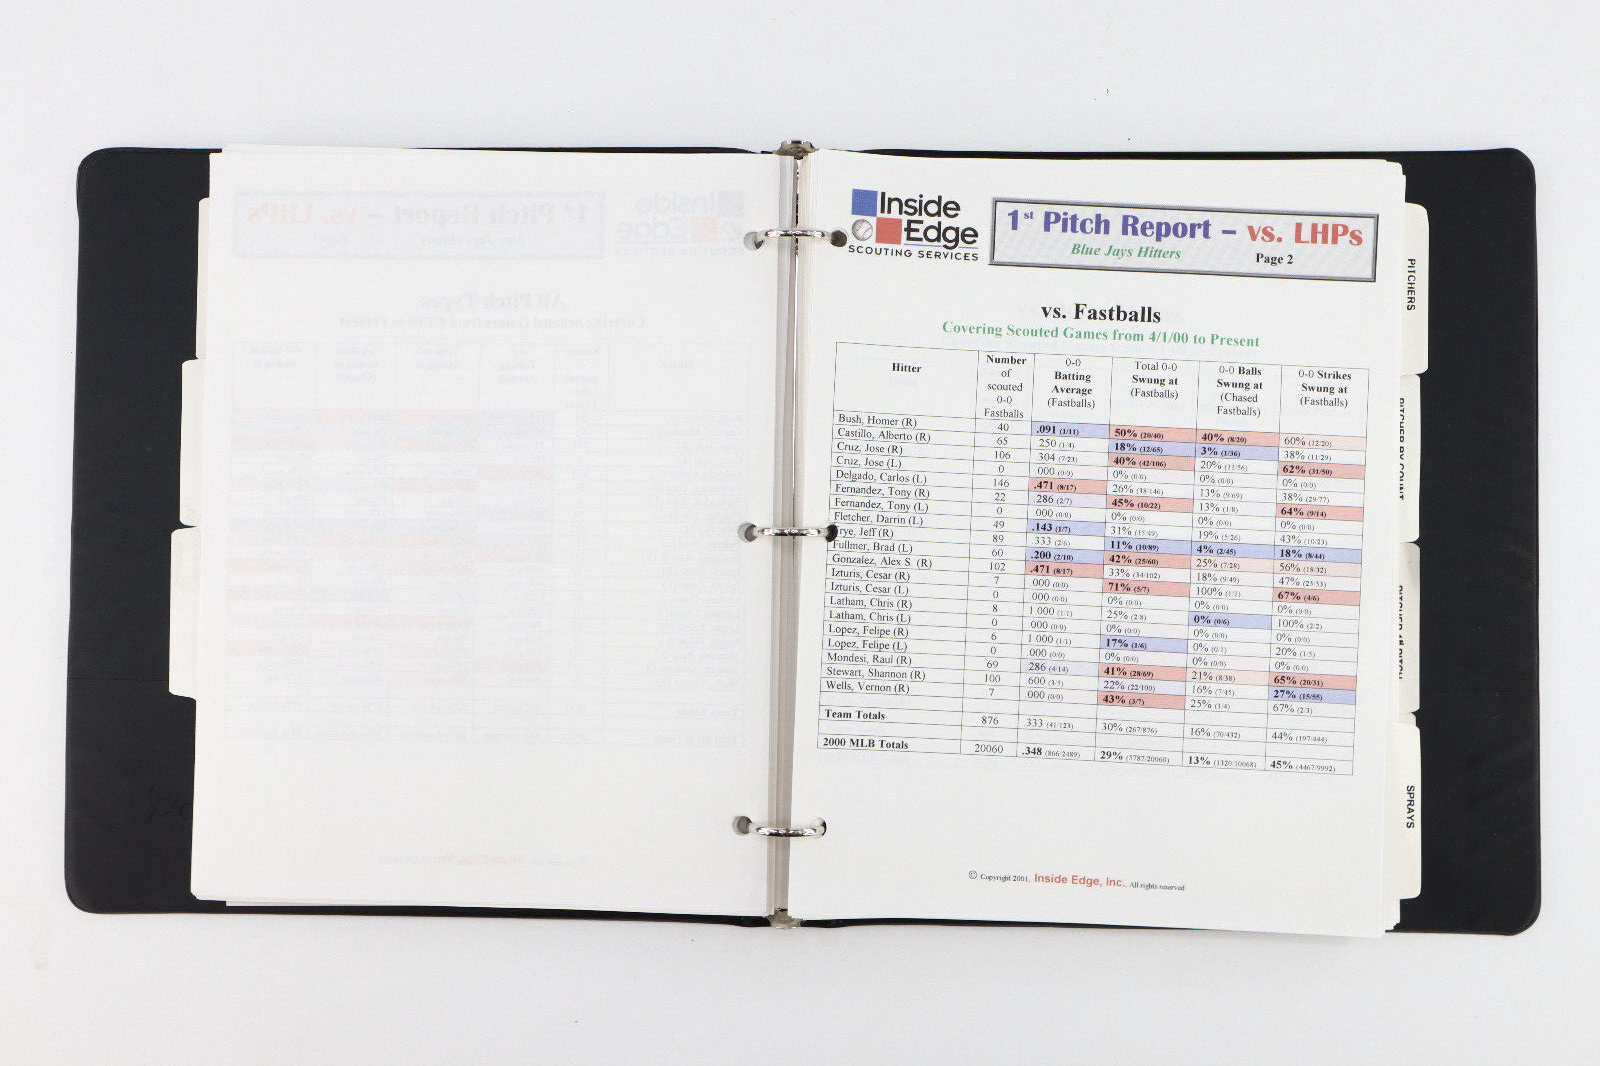 Inside
Edge
SCOUTING SERVICES
1st Pitch Report – vs. LHPs
Blue Jays Hitters Page 2
vs. Fastballs
Covering Scouted Games from 4/1/00 to Present
Hitter Number of scouted 0-0 Fastballs 0-0 Batting Average (Fastballs) Total 0-0 Swung at (Fastballs) 0-0 Balls Swung at (Chased Fastballs) 0-0 Strikes Swung at (Fastballs)
Bush, Homer (R) 40 .091 (1/11) 50% (20/40) 40% (8/20) 60% (12/20)
Castillo, Alberto (R) 65 250 (1/4) 18% (12/65) 3% (1/36) 38% (11/29)
Cruz, Jose (R) 106 304 (7/23) 40% (42/106) 20% (11/56) 62% (31/50)
Cruz, Jose (L) 0 000 (0/0) 0% (0/0) 0% (0/0) 0% (0/0)
Delgado, Carlos (L) 146 .471 (8/17) 26% (38/146) 13% (9/69) 38% (29/77)
Fernandez, Tony (R) 22 286 (2/7) 45% (10/22) 13% (1/8) 64% (9/14)
Fernandez, Tony (L) 0 000 (0/0) 0% (0/0) 0% (0/0) 0% (0/0)
Fletcher, Darrin (L) 49 .143 (1/7) 31% (15/49) 19% (5/26) 43% (10/23)
rye, Jeff (R) 89 333 (2/6) 11% (10/89) 4% (2/45) 18% (8/44)
Fullmer, Brad (L) 60 .200 (2/10) 42% (25/60) 25% (7/28) 56% (18/32)
Gonzalez, Alex S. (R) 102 .471 (8/17) 33% (34/102) 18% (9/49) 47% (25/53)
Izturis, Cesar (R) 7 000 (0/0) 71% (5/7) 100% (1/1) 67% (4/6)
Izturis, Cesar (L) 0 000 (0/0) 0% (0/0) 0% (0/0) 0% (0/0)
Latham, Chris (R) 8 1 000 (1/1) 25% (2/8) 0% (0/6) 100% (2/2)
Latham, Chris (L) 0 000 (0/0) 0% (0/0) 0% (0/0) 0% (0/0)
Lopez, Felipe (R) 6 1 000 (1/1) 17% (1/6) 0% (0/1) 20% (1/5)
Lopez, Felipe (L) 0 000 (0/0) 0% (0/0) 0% (0/0) 0% (0/0)
Mondesi, Raul (R) 69 286 (4/14) 41% (28/69) 21% (8/38) 65% (20/31)
Stewart, Shannon (R) 100 600 (3/5) 22% (22/100) 16% (7/45) 27% (15/55)
Wells, Vernon (R) 7 000 (0/0) 43% (3/7) 25% (1/4) 67% (2/3)
Team Totals 876 333 (41/123) 30% (267/876) 16% (70/432) 44% (197/444)
2000 MLB Totals 20060 .348 (866/2489) 29% (5787/20060) 13% (1320/10068) 45% (4467/9992)
© Copyright 2001, Inside Edge, Inc., All rights reserved
PITCHERS
PITCHER BY COUNT
SPRAYS